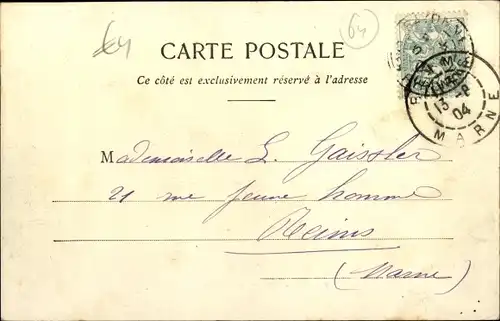 64
64
CARTE POSTALE
Ce côté est exclusivement réservé à l'adresse
13 -8
04
MARNE
Mademoiselle L. Gaissler
21 rue jeune homme
Reims
(Marne)